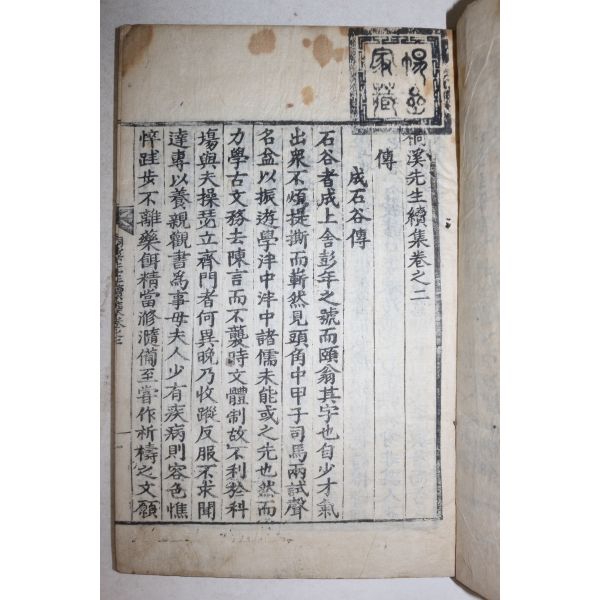 桐溪先生續集卷之二
傳
成石谷傳
石谷者成上舍彭年之號而頤翁其字也自少才氣
出衆不煩提撕而嶄然見頭角中甲子司馬兩試聲
名益以振遊學泮中泮中諸儒未能或之先也然而
力學古文務去陳言而不襲時文體制故不利於科
場與夫操瑟立齊門者何異晩乃收蹤反服不求聞
達專以養親觀書爲事母夫人少有疾病則容色憔
悴跬步不離藥餌精當滫瀡備至嘗作祈禱之文願
家藏